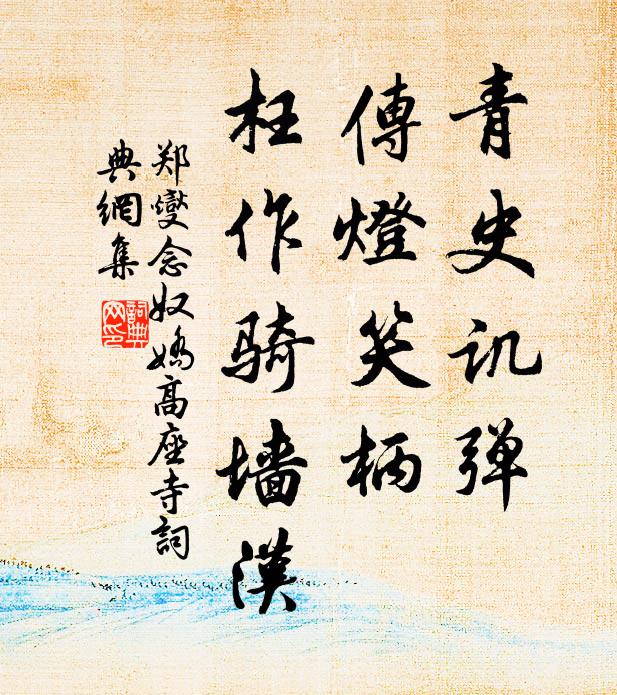 青史讥弹
傳燈笑柄
枉作骑墙漢
郑燮念奴嬌高座寺詞
典網集
詞典網印